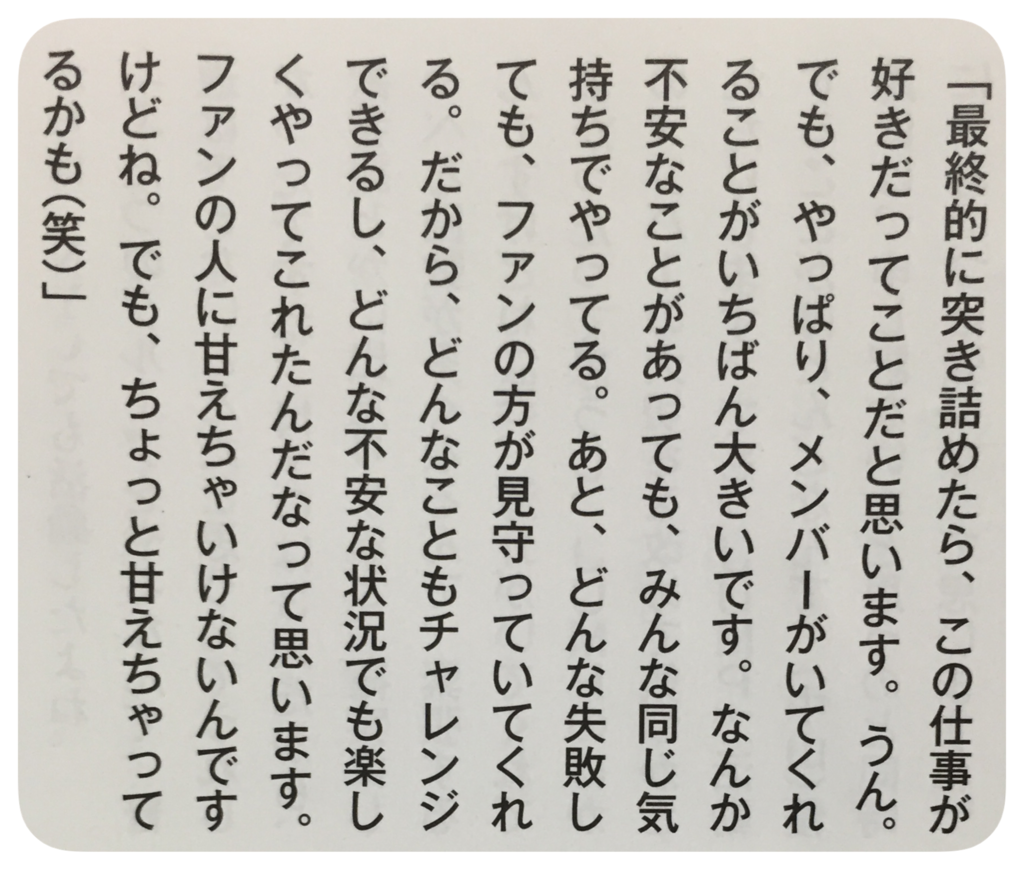 「最終的に突き詰めたら、この仕事が
好きだってことだと思います。うん。
でも、やっぱり、メンバーがいてくれ
ることがいちばん大きいです。なんか
不安なことがあっても、みんな同じ気
持ちでやってる。あと、どんな失敗し
ても、ファンの方が見守っていてくれ
る。だから、どんなこともチャレンジ
できるし、どんな不安な状況でも楽し
くやってこれたんだなって思います。
ファンの人に甘えちゃいけないんです
けどね。でも、ちょっと甘えちゃって
るかも(笑)」